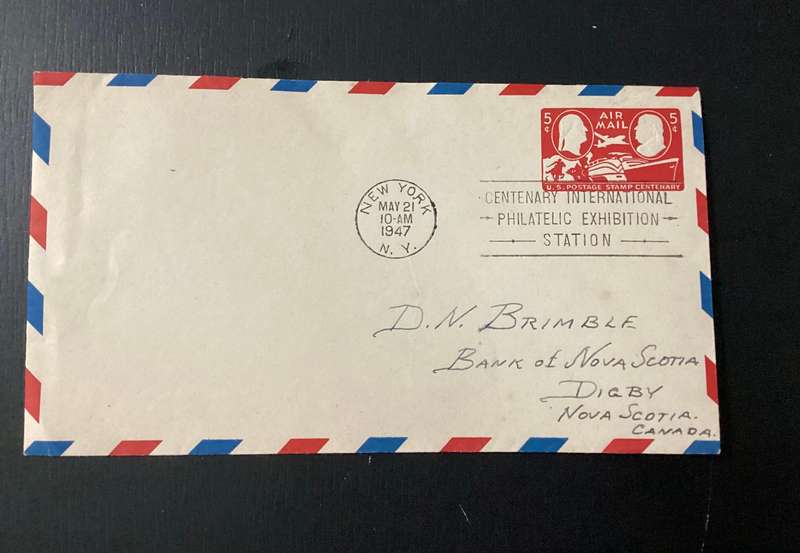 5¢ AIR MAIL 5¢
U.S. POSTAGE STAMP CENTENARY
NEW YORK
MAY 21
10-AM
1947
N. Y.
CENTENARY INTERNATIONAL
PHILATELIC EXHIBITION
STATION
D.N. BRIMBLE
BANK of NOVA SCOTIA
DIGBY
NOVA SCOTIA.
CANADA.